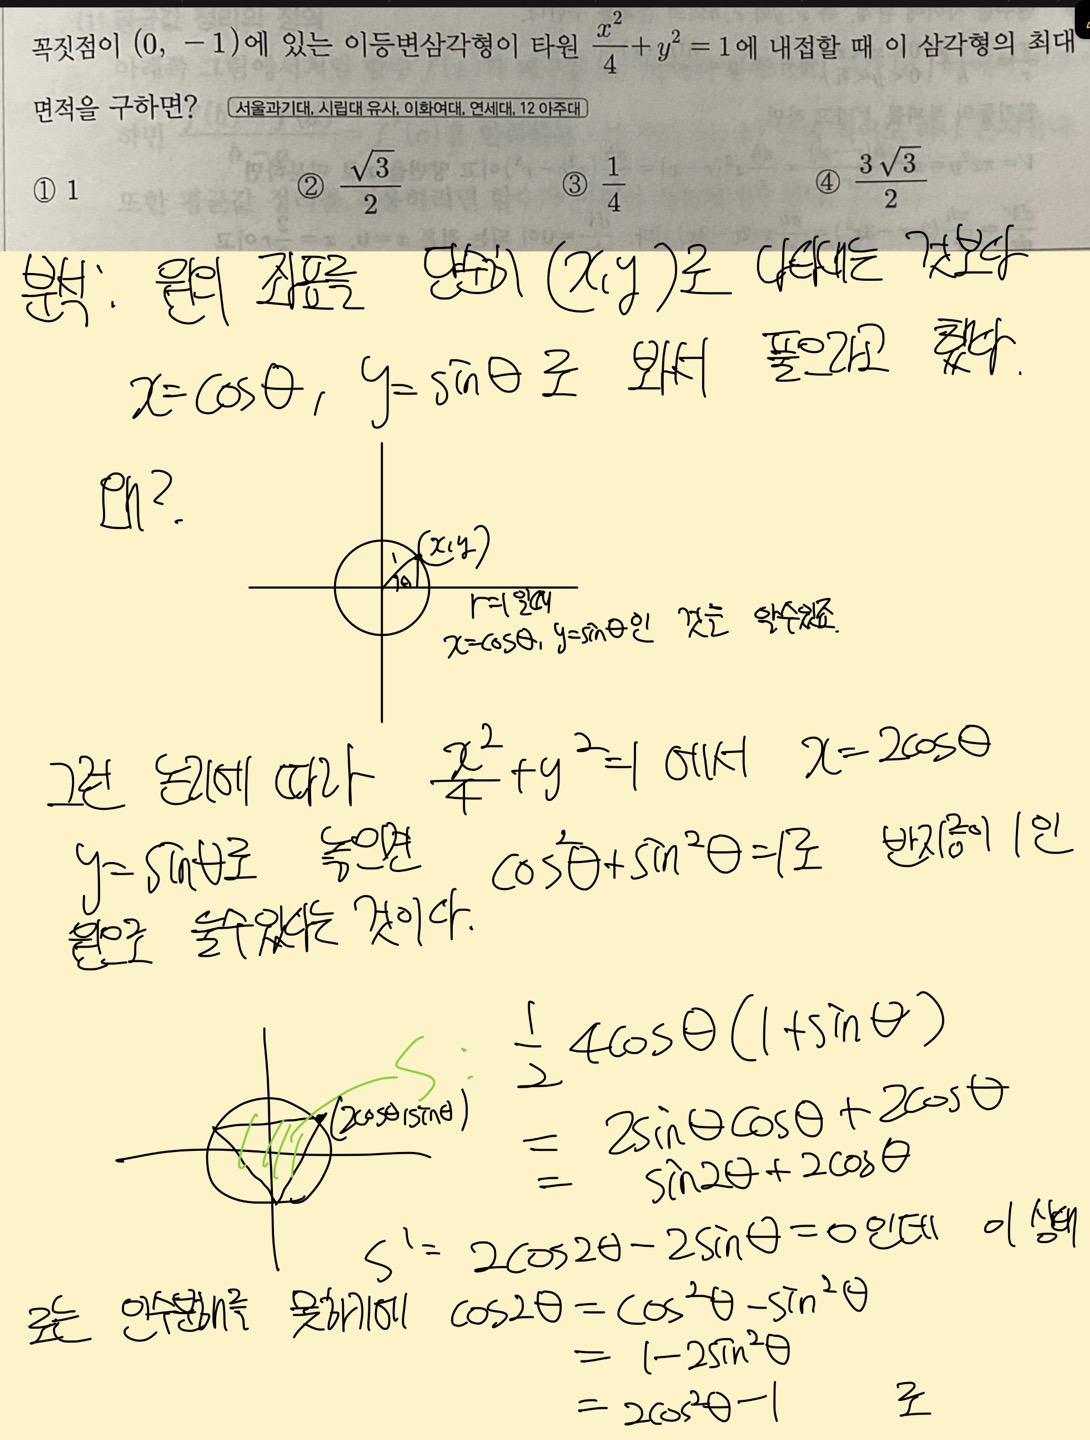 꼭짓점이 (0, -1)에 있는 이등변삼각형이 타원 x²/4 + y² = 1에 내접할 때 이 삼각형의 최대
면적을 구하면? 서울과기대, 시립대 유사, 이화여대, 연세대, 12 아주대
① 1 ② √3/2 ③ 1/4 ④ 3√3/2
분석: 원의 좌표를 단순히 (x,y)로 나타내는 것보다
x=cosθ, y=sinθ로 봐서 풀으라고 했다.
왜?
(x,y)
1
θ
r=1일때
x=cosθ, y=sinθ인 것은 알수있죠.
그런 논리에 따라 x²/4 + y² = 1 에서 x=2cosθ
y=sinθ로 놓으면 cos²θ+sin²θ=1로 반지름이 1인
원으로 볼수있다는 것이다.
S: 1/2 4cosθ(1+sinθ)
(2cosθ, sinθ)
= 2sinθcosθ+2cosθ
= sin2θ+2cosθ
S' = 2cos2θ-2sinθ=0인데 이 상태
로는 인수분해를 못하기에 cos2θ = cos²θ-sin²θ
= 1-2sin²θ
= 2cos²θ-1 로